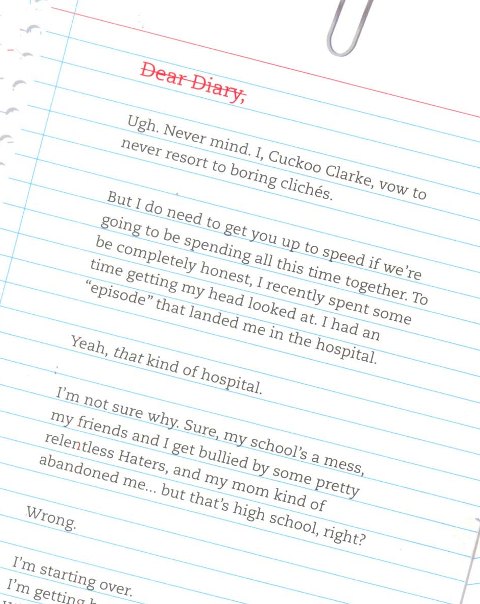 Dear Diary,
Ugh. Never mind. I, Cuckoo Clarke, vow to
never resort to boring clichés.
But I do need to get you up to speed if we’re
going to be spending all this time together. To
be completely honest, I recently spent some
time getting my head looked at. I had an
“episode” that landed me in the hospital.
Yeah, that kind of hospital.
I’m not sure why. Sure, my school’s a mess,
my friends and I get bullied by some pretty
relentless Haters, and my mom kind of
abandoned me... but that’s high school, right?
Wrong.
I’m starting over.
I’m getting